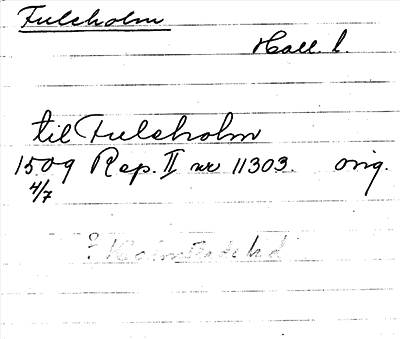 Fulsholm
Hall. l.
til Fulsholm
1509 Rep. II nr 11303. orig.
4/7
?